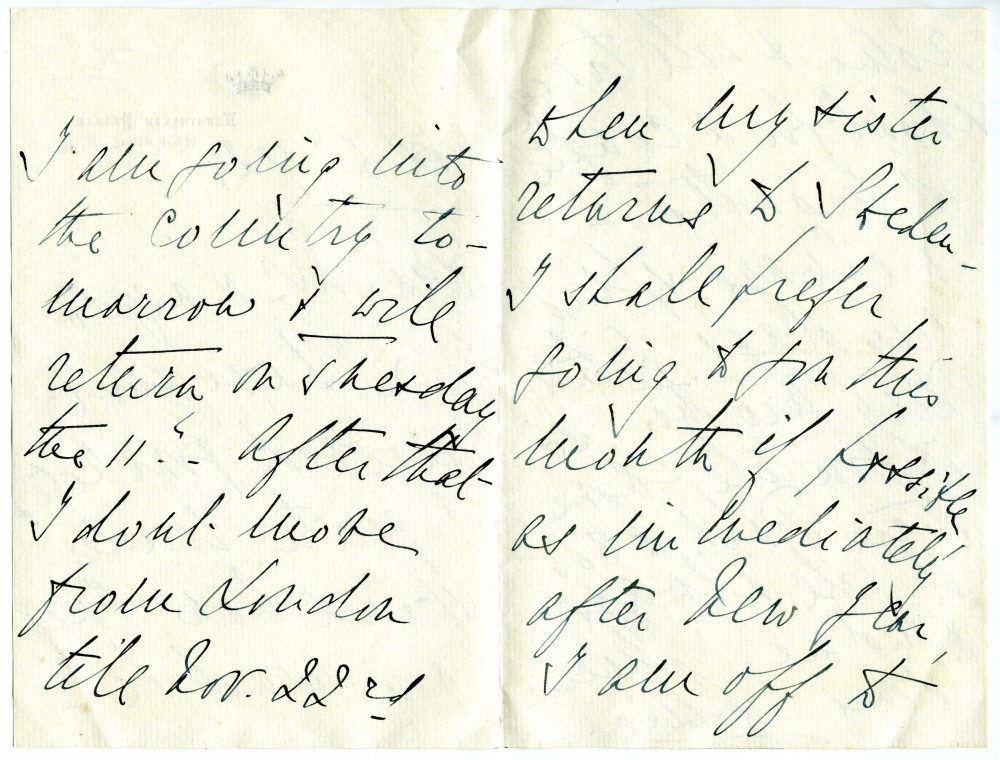 I am going into
the Country to-
morrow & will
return on Tuesday
the 11th- After that-
I dont move
from London
till Nov. 22nd
when my sister
returns to Sweden-
I shall prefer
going to you this
month if possible
as immediately
after New Year,
I am off to